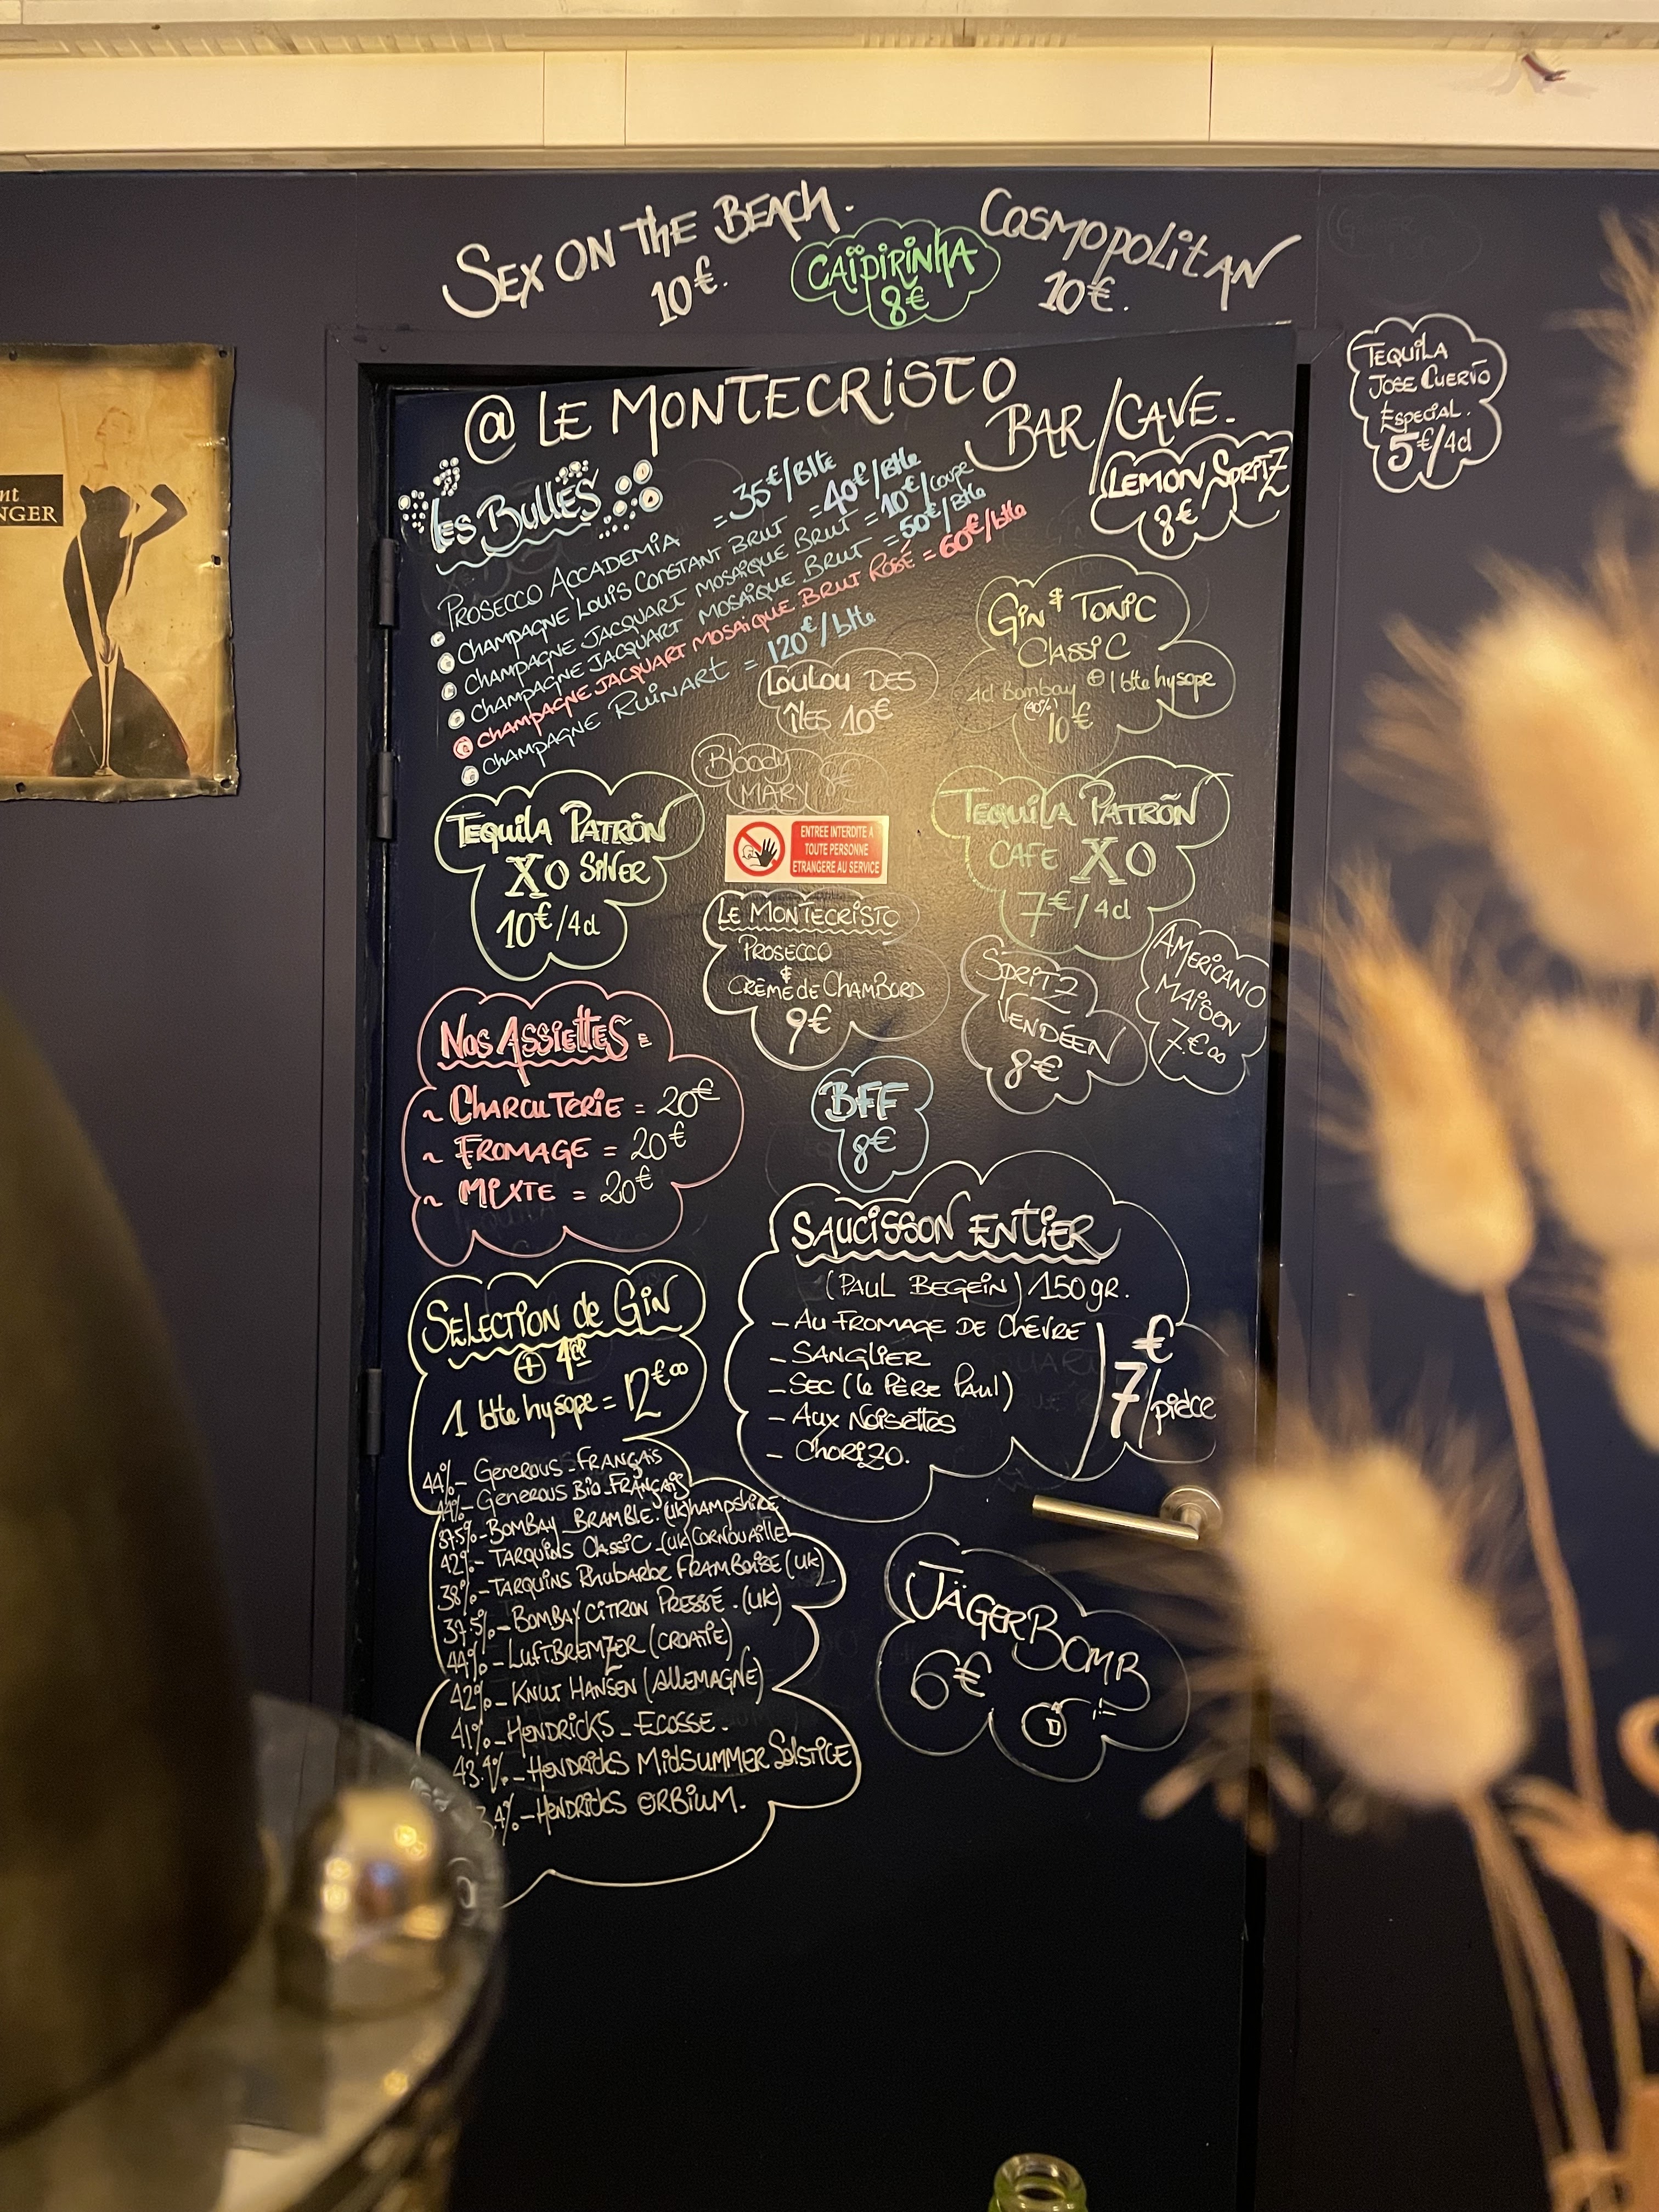 SEX ON THE BEACH.
10€.
CAÏPIRINHA
8€
COSMOPOLITAN
10€.
TEQUILA
JOSE CUERVO
ESPECIAL.
5€/4cl
NGER
@ LE MONTECRISTO
BAR/CAVE.
LEMON SPRITZ
8€
Les BULLES
PROSECCO ACCADEMIA = 35€/Btle
CHAMPAGNE LOUIS CONSTANT BRUT = 40€/Btle
CHAMPAGNE JACQUART MOSAÏQUE BRUT = 10€/coupe
CHAMPAGNE JACQUART MOSAÏQUE BRUT = 50€/Btle
CHAMPAGNE JACQUART MOSAÏQUE BRUT ROSÉ = 60€/btle
CHAMPAGNE RUINART = 120€/btle
GIN & TONIC
CLASSIC
4cl Bombay + 1 btte hysope
(40%)
10€
LOULOU DES
ÎLES 10€
Bloody
MARY 8€
TEQUILA PATRÓN
XO SILVER
10€/4cl
ENTREE INTERDITE A
TOUTE PERSONNE
ETRANGERE AU SERVICE
TEQUILA PATRÕN
CAFE XO
7€/4cl
LE MONTECRISTO
PROSECCO
&
CRÈME de CHAMBORD
9€
SPRITZ
VENDÉEN
8€
AMERICANO
MAISON
7.€00
NOS ASSIETTES =
~ CHARCUTERIE = 20€
~ FROMAGE = 20€
~ MIXTE = 20€
BFF
8€
SAUCISSON ENTIER
(PAUL BEGEIN) 150gr.
- AU FROMAGE DE CHÈVRE
- SANGLIER
- SEC (le PÈRE PAUL)
- AUX NOISETTES
- CHORIZO.
7€/pièce
SELECTION de GIN
+ 4cl
1 btte hysope = 12€00
44% - GENEROUS - FRANÇAIS
44% - GENEROUS BIO - FRANÇAIS
37.5% - BOMBAY BRAMBLE. (UK) HAMPSHIRE
42% - TARQUINS CLASSIC - (UK) CORNOUAILLE
38% - TARQUINS RHUBARBE FRAMBOISE (UK)
37.5% - BOMBAY CITRON PRESSÉ. (UK)
44% - LUFTBREMZER (CROATIE)
42% - KNUT HANSEN (ALLEMAGNE)
41% - HENDRICKS - ECOSSE.
43.4% - HENDRICKS MIDSUMMER SOLSTICE
3.4% - HENDRICKS ORBIUM.
JÄGERBOMB
6€